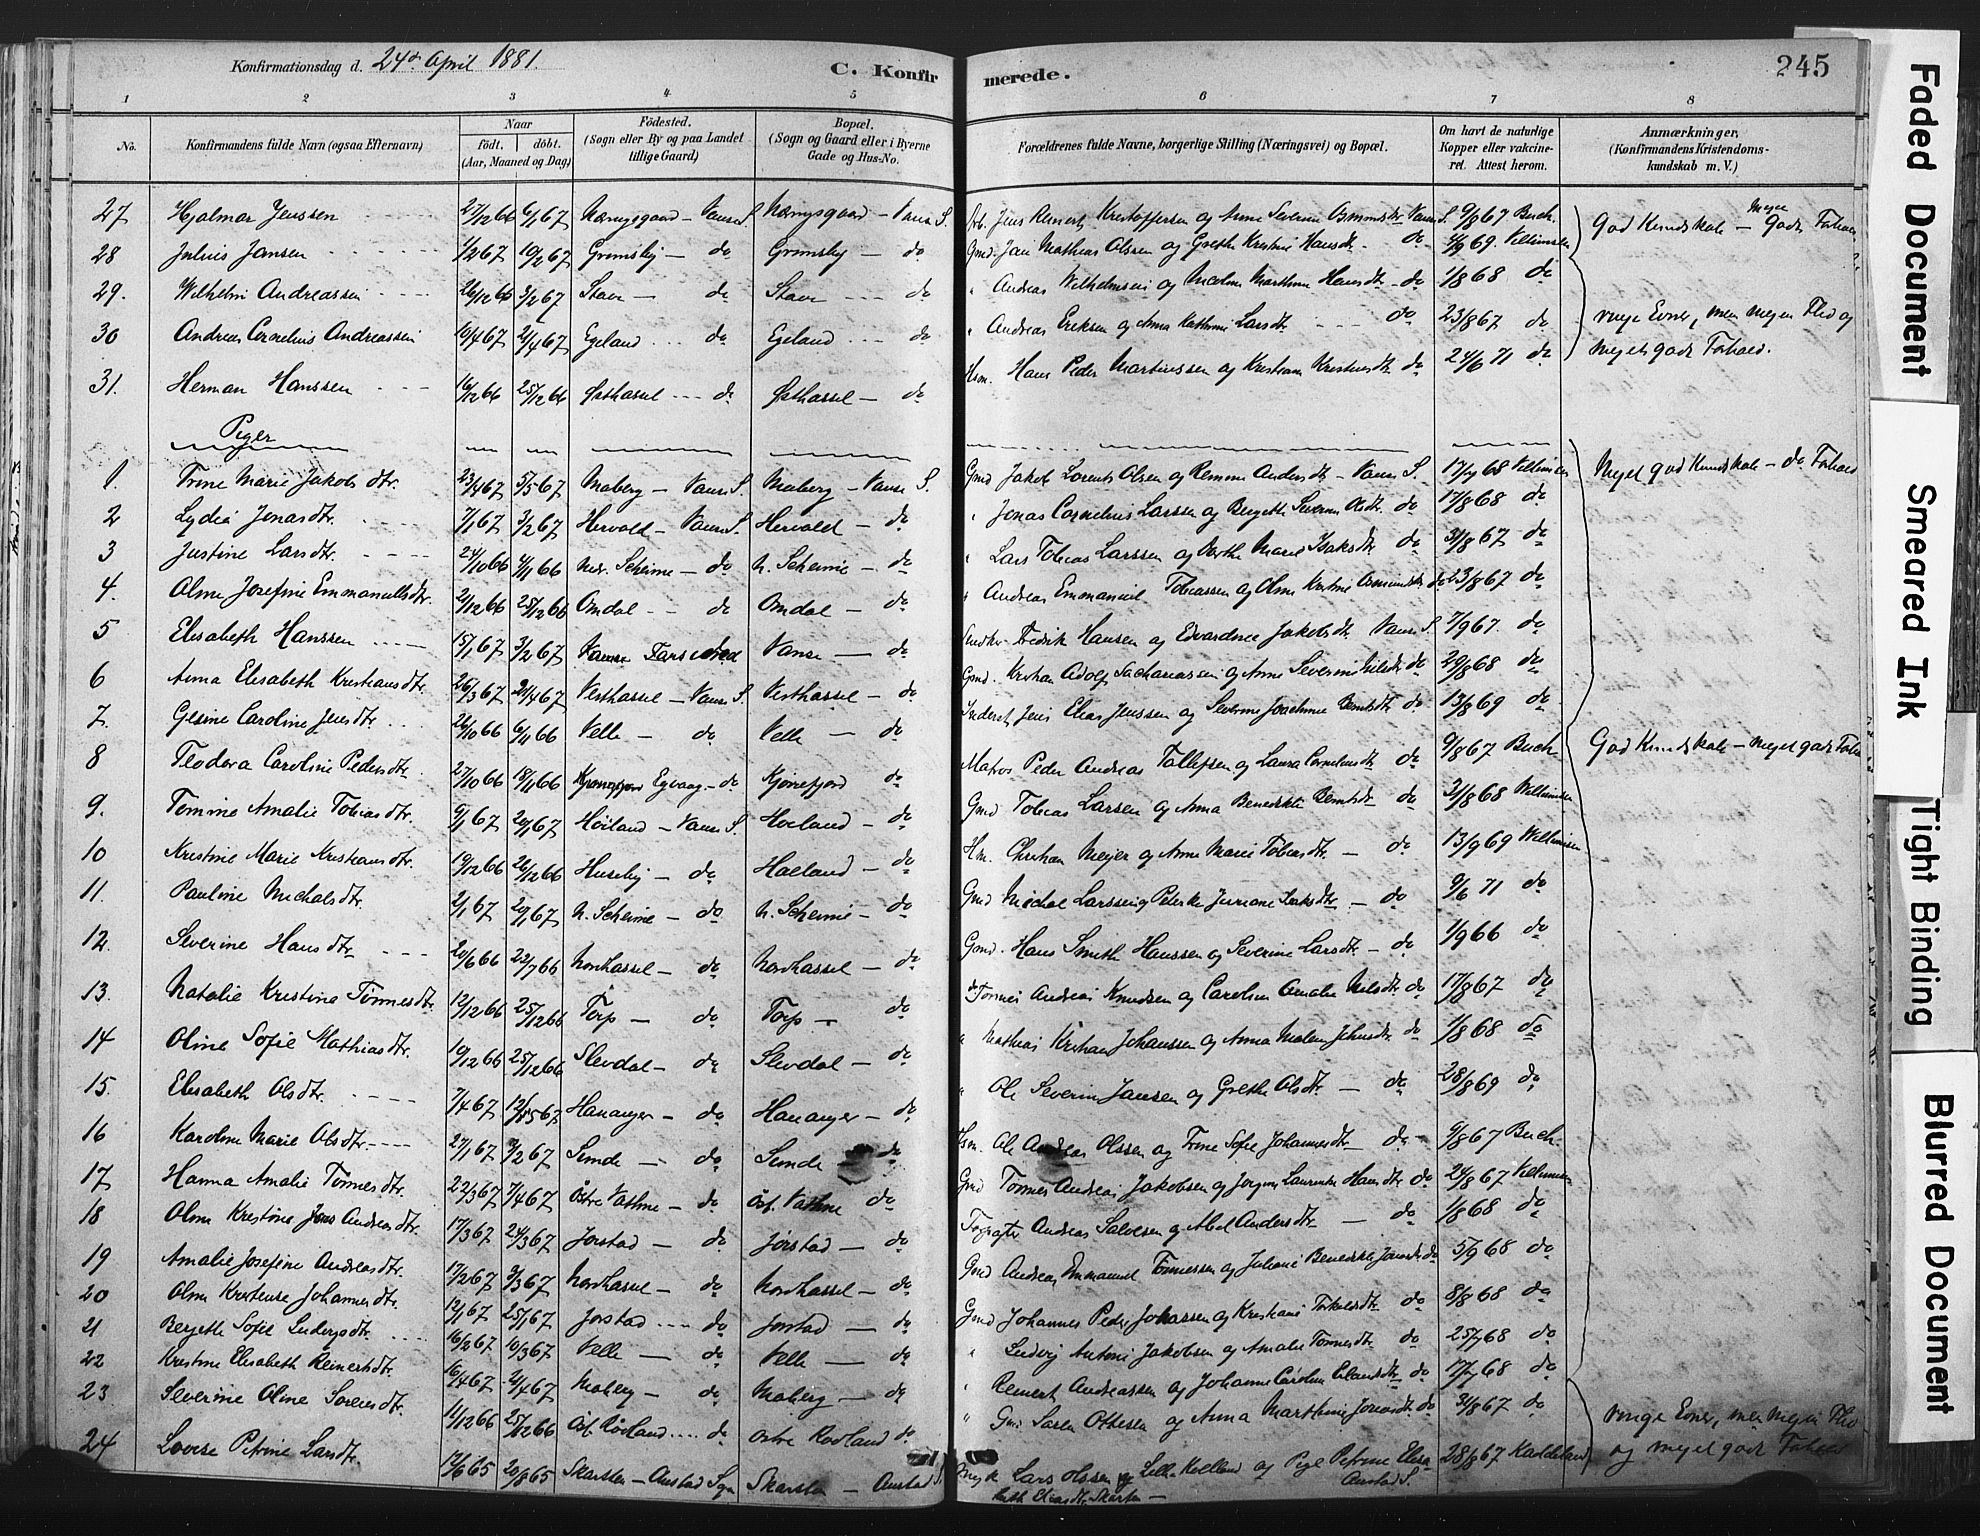 Konfirmationsdag d. 24de April 1881. C. Konfirmerede. 245
1 2 3 4 5 6 7 8
No. Konfirmandens fulde Navn (ogsaa Efternavn) Naar født. døbt. (Aar, Maaned og Dag) Fødested. (Sogn eller By og paa Landet tillige Gaard) Bopæl. (Sogn og Gaard eller i Byerne Gade og Hus-No. Forældrenes fulde Navne, borgerlige Stilling (Næringsvei) og Bopæl. Om havt de naturlige Kopper eller vakcineret. Attest herom. Anmærkninger, (Konfirmandens Kristendomskundskab m. V.)
27 Hjalmar Jenssen 27/12 66 6/1 67 Vanse S. Vanse S. Jens Reinert Kristoffersen og Anne Severine Vanse S. 9/8 67 Buch. God Kundskab – Meget Godt Forhold
28 Julius Jansen 1/2 67 10/2 67 Grimsby — do Grimsby — do Gmd. Jan Mathias Olssen og Grethe Kristine Hansdtr. do 4/9 69
29. Wilhelm Andreassen 26/12 66 3/2 67 Stave — do Stave — do Andreas Wilhelmsen og Marthine Hansdtr – do 1/8 68 do
30 Andreas Cornelius Andreassen 10/4 67 21/4 67 Egeland ... do Egeland ... do Andreas Eriksen og Anna Kathrine Larsdtr do 23/8 67 do ringe Evner, men megen Flid og
31. Herman Hanssen 16/12 66 25/12 66 Østhassel --- do Østhassel — do Hsm. Hans Peder Martinussen og Kristiane Kristensdtr do 24/6 71 do meget godt Forhold.
Piger
1. Trine Marie Jakobsdtr. 23/4 67 5/5 67 Maberg — Vanse S. Maberg — Vanse S. Gmd Jakob Lorents Olsen og Andersdtr – Vanse S. 17/9 68 Meget god Kundskab – do Forhold
2 Lydia Jonasdtr. 7/1 67 3/2 67 Hervold – Vanse S. Hervold – do Jonas Cornelius Larssen og Bergethe Severine Olsdtr. do 17/8 68 do
3 Justine Larsdtr. 24/10 66 4/11 66 Ner. Scheime – do N. Scheime – do Lars Tobias Larssen og Berthe Marie Isaksdtr do 31/8 67 do
4. Olene Josefine Emmanuelsdtr. 21/12 66 25/12 66 Omdal -- do Omdal – do Andreas Emmanuel Tobiassen og Olene Kristine do 23/8 67 do
5 Elisabeth Hanssen 15/1 67 3/2 67 Farsund Vanse — do Fredrik Hansen og Edvardine Jakobsdtr Vanse S. 7/9 67. do
6 Anna Elisabeth Kristiansdtr. 26/3 67 21/4 67 Vesthassel – Vanse S. Vesthassel – do Gmd. Kristian Adolf Sachariassen og Anne Severine Nilsdtr do 29/8 68 do
7. Gesine Caroline Jensdtr. 26/10 66 6/11 66 Velle — do Velle — do Inderst Jens Elias Jenssen og Severine Joachime do 13/8 69 do
8 Teodora Caroline Pedersdtr. 27/10 66 18/11 66 Egvaag – do Kjørrefjord do Matros Peder Andreas Tallefsen og Laura Corneliusdtr do 9/8 67 Buch God Kundskab – meget godt Forhold
9. Tomine Amalie Tobiasdtr. 9/1 67 20/1 67 Høiland – Vanse S. Hoeland – do Gmd Tobias Larsen og Anna Benedikte Berntsdtr do 31/8 68
10 Kristine Marie Kristiansdtr. 19/12 66 26/12 66 Huseby – do Haeland – do Hm. Christian Meyer og Anne Marie Tobiasdtr. – do 13/9 69
11. Pauline Michalsdtr. 2/1 67 20/1 67 N. Scheime – do N. Scheime – do Gmd Michal Larssen og Peterke Jurriane Isaksdtr. – do 9/6 71 do
12. Severine Hansdtr. 20/6 66 22/7 66 Nordhassel – do Nordhassel – do Gmd. Hans Smith Hanssen og Severine Larsdtr – do 1/9 66 do
13. Natalie Kristina Tønnesdtr 12/12 66 25/12 66 Torp — do Torp — do Tønnes Andreas Knudsen og Caroline Amalie Nilsdtr. do 17/8 67 do
14 Oline Sofie Mathiasdtr. 19/12 66 25/12 66 Slevdal – do Slevdal – do Mathias Kristian Johanssen og Anna Malene do 1/8 68 do
15. Elisabeth Olsdtr. 7/4 67 Hananger – do Hananger – do Ole Severin Jansen og Grethe Olsdtr. – do 28/8 69 do
16 Karoline Marie Olsdtr. 27/1 67 9/2 67 Sunde – do Sunde do Hsm. Ole Andreas Olssen og Trine Sofie Johannesdtr do 9/8 67 Buch
17 Hanna Amalie Tønnesdtr. 22/3 67 7/4 67 Østre Vathne – do Øst. Vathne do Gmd Tønnes Andreas Jakobsen og Jørgine Laurentse Hansdtr do 24/8 67
18 Olene Kristine Andreasdtr. 17/3 67 24/3 67 Jørstad – do Jørstad – do Andreas Salvesen og Abel Andersdtr. — do 1/8 68 do
19 Amalie Josefine Andreasdtr. 17/2 67 3/3 67 Nordhassel – do Nordhassel – do Gmd Andreas Emmanuel Tønnessen og Juliane Benedikte do 5/9 68 do
20 Olene Kristense Johannesdtr. 12/1 67 25/1 67 Jørstad .... do Jørstad — do Gmd Johannes Peder og Kristiane do 8/8 68 do
21 Bergethe Sofie Ludvigsdtr. 16/2 67 10/3 67 Velle — do Velle — do Ludvig Antoni Jakobsen og Amalie Tønnesdtr. do 25/7 68 do
22 Kristine Elisabeth Reinertsdtr. 16/4 67 21/4 67 Maberg – do Maberg – do Reinert Andreassen og Johanne Caroline do 17/7 68 do
23 Severine Oline Sørensdtr. 11/12 66 25/12 66 Øst. Rødland .... do Østre Rødland do Gmd Søren Ottesen og Anna Marthine do 31/8 67 do ringe Evner, men megen Flid
24 Lovise Petrine Larsdtr. 17/6 65 20/8 65 Skarsten – Austad Sogn Skarsten – Austad S. Lars Olssen Lille-Kolland og Pige Petrine Elisa- 28/8 67 og meget godt Forhold
beth Eliasdtr. Skarsten – Austad S.
Faded Document
Smeared Ink
Tight Binding
Blurred Document